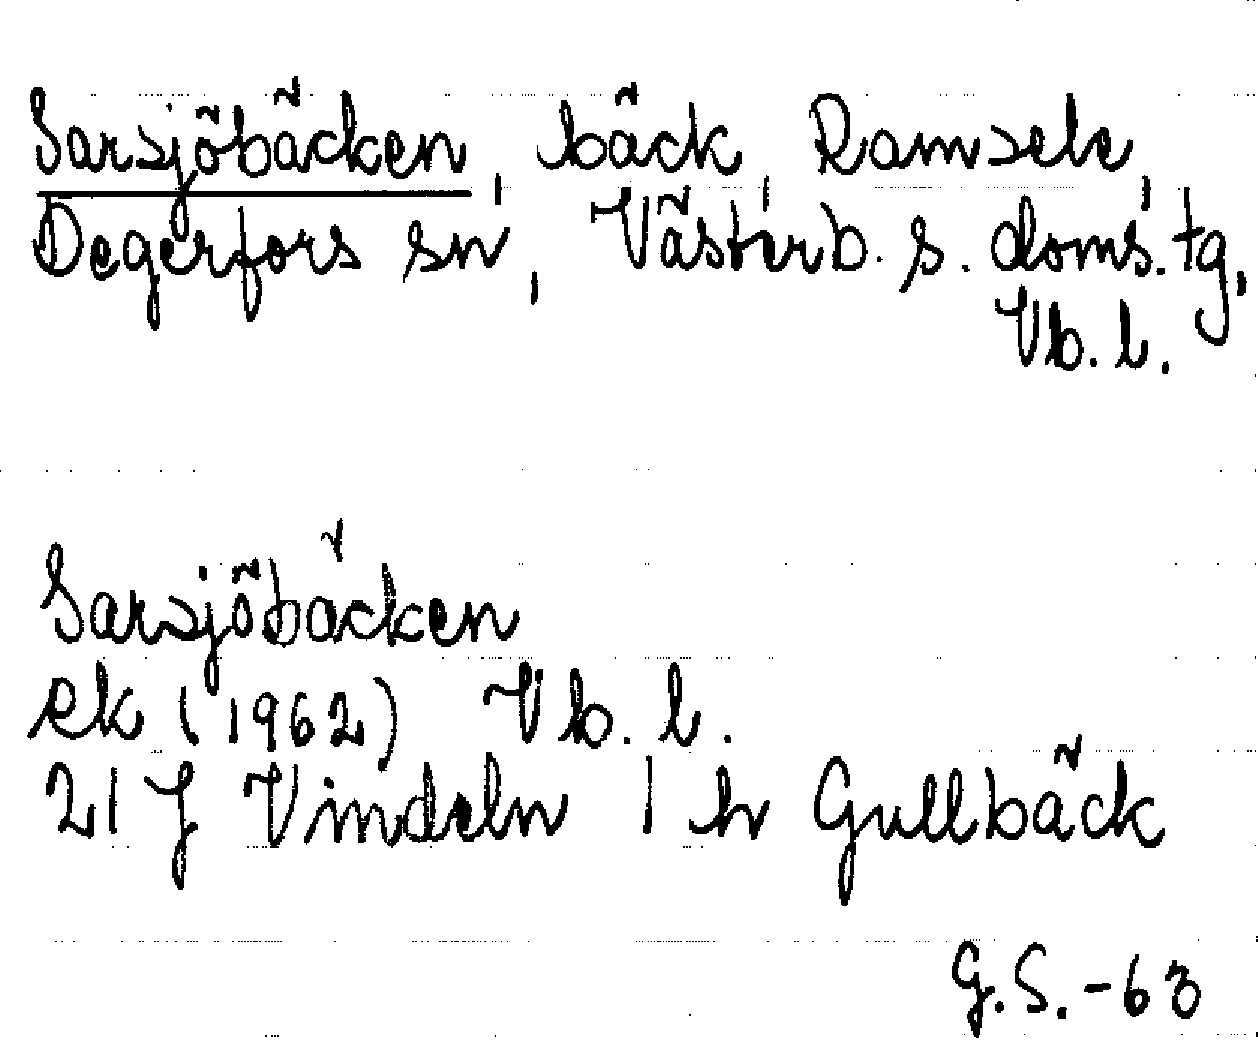 Sarsjöbäcken, bäck, Ramsele,
Degerfors sn, Västerb. s. doms. tg,
Vb. l.
Sarsjöbäcken
ek (1962) Vb. l.
21 J Vindeln 1 h Gullbäck
G.S. -63